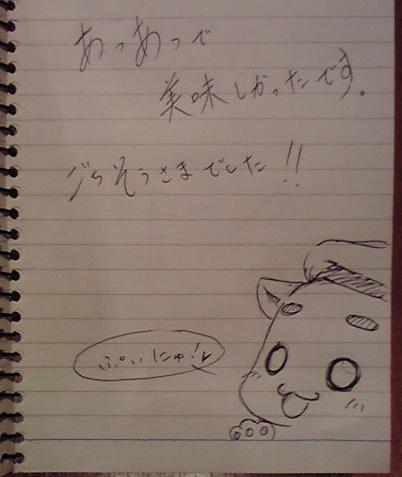 あつあつで
美味しかったです。
ごちそうさまでした!!
ぷいにゅ!